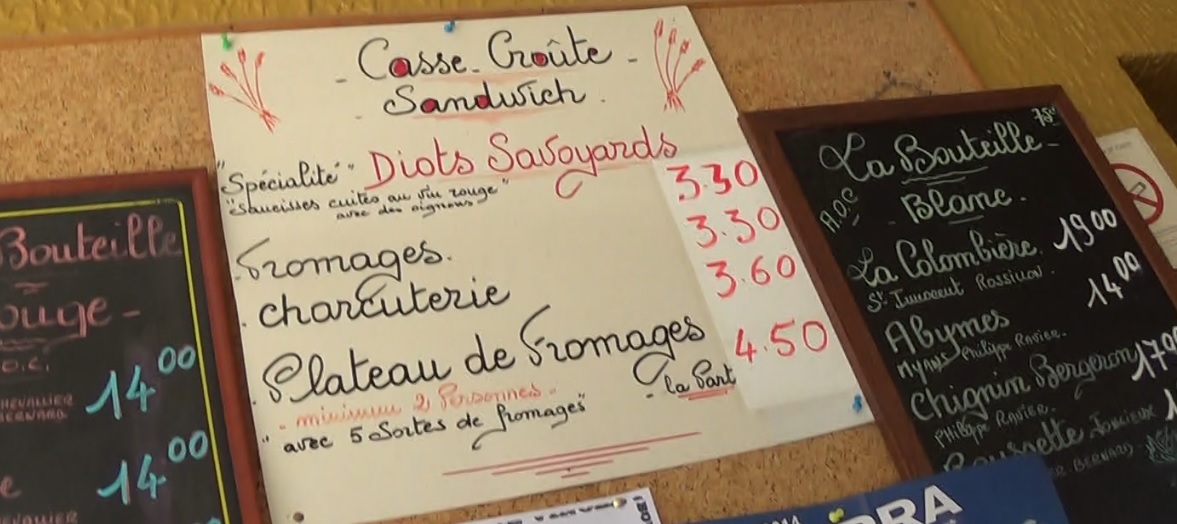 Casse-Croûte
Sandwich
"Spécialité" Diots Savoyards 3.30
"Saucisses cuites au vin rouge"
avec des oignons
Fromages. 3.30
charcuterie 3.60
Plateau de Fromages 4.50
la Part
- minimum 2 Personnes -
"avec 5 Sortes de fromages"
Bouteille
ouge -
O.C.
CHEVALLIER
BERNARD
14 00
14 00
La Bouteille
A.O.C
Blanc.
La Colombière. 19 00
St Innocent Rossillon.
Abymes 14 00
Philippe Ravier.
Chignin Bergeron 17 00
Philippe Ravier.
BERNARD
RA